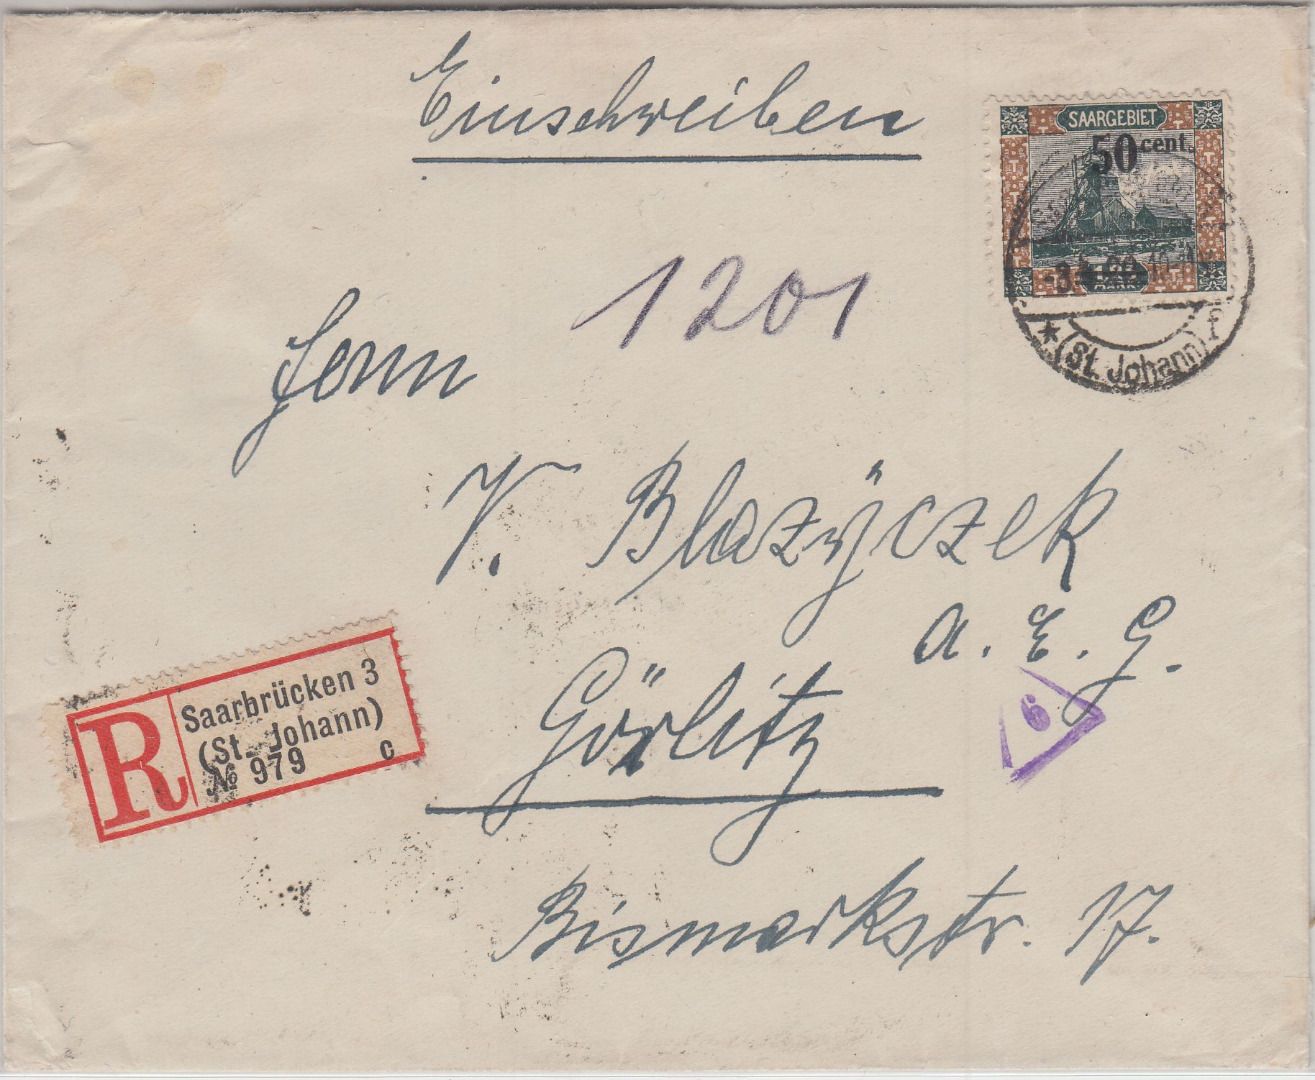 Einschreiben
SAARGEBIET
50 cent.
MARK
(St. Johann) f
1201
Herrn
V. Blazÿczek
A. E. G.
6
Görlitz
Bismarkstr. 17.
R
Saarbrücken 3
(St. Johann)
№ 979 c